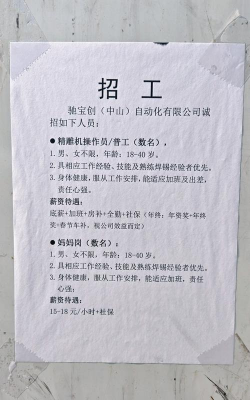 招工
驰宝创（中山）自动化有限公司诚
招如下人员：
●精雕机操作员/普工（数名），
1. 男、女不限，年龄：18-40岁。
2. 具相应工作经验、技能及熟练焊锡经验者优先。
3. 身体健康，服从工作安排，能适应加班及出差，
责任心强。
薪资待遇：
底薪+加班+房补+全勤+社保（年终：年资奖+年终
奖+春节车补，视公司效益而定）
●妈妈岗（数名）：
1. 男、女不限，年龄：18-40岁。
2. 具相应工作经验、技能及熟练焊锡经验者优先。
3. 身体健康，服从工作安排，能适应加班，责任
心强；
薪资待遇：
15-18元/小时+社保